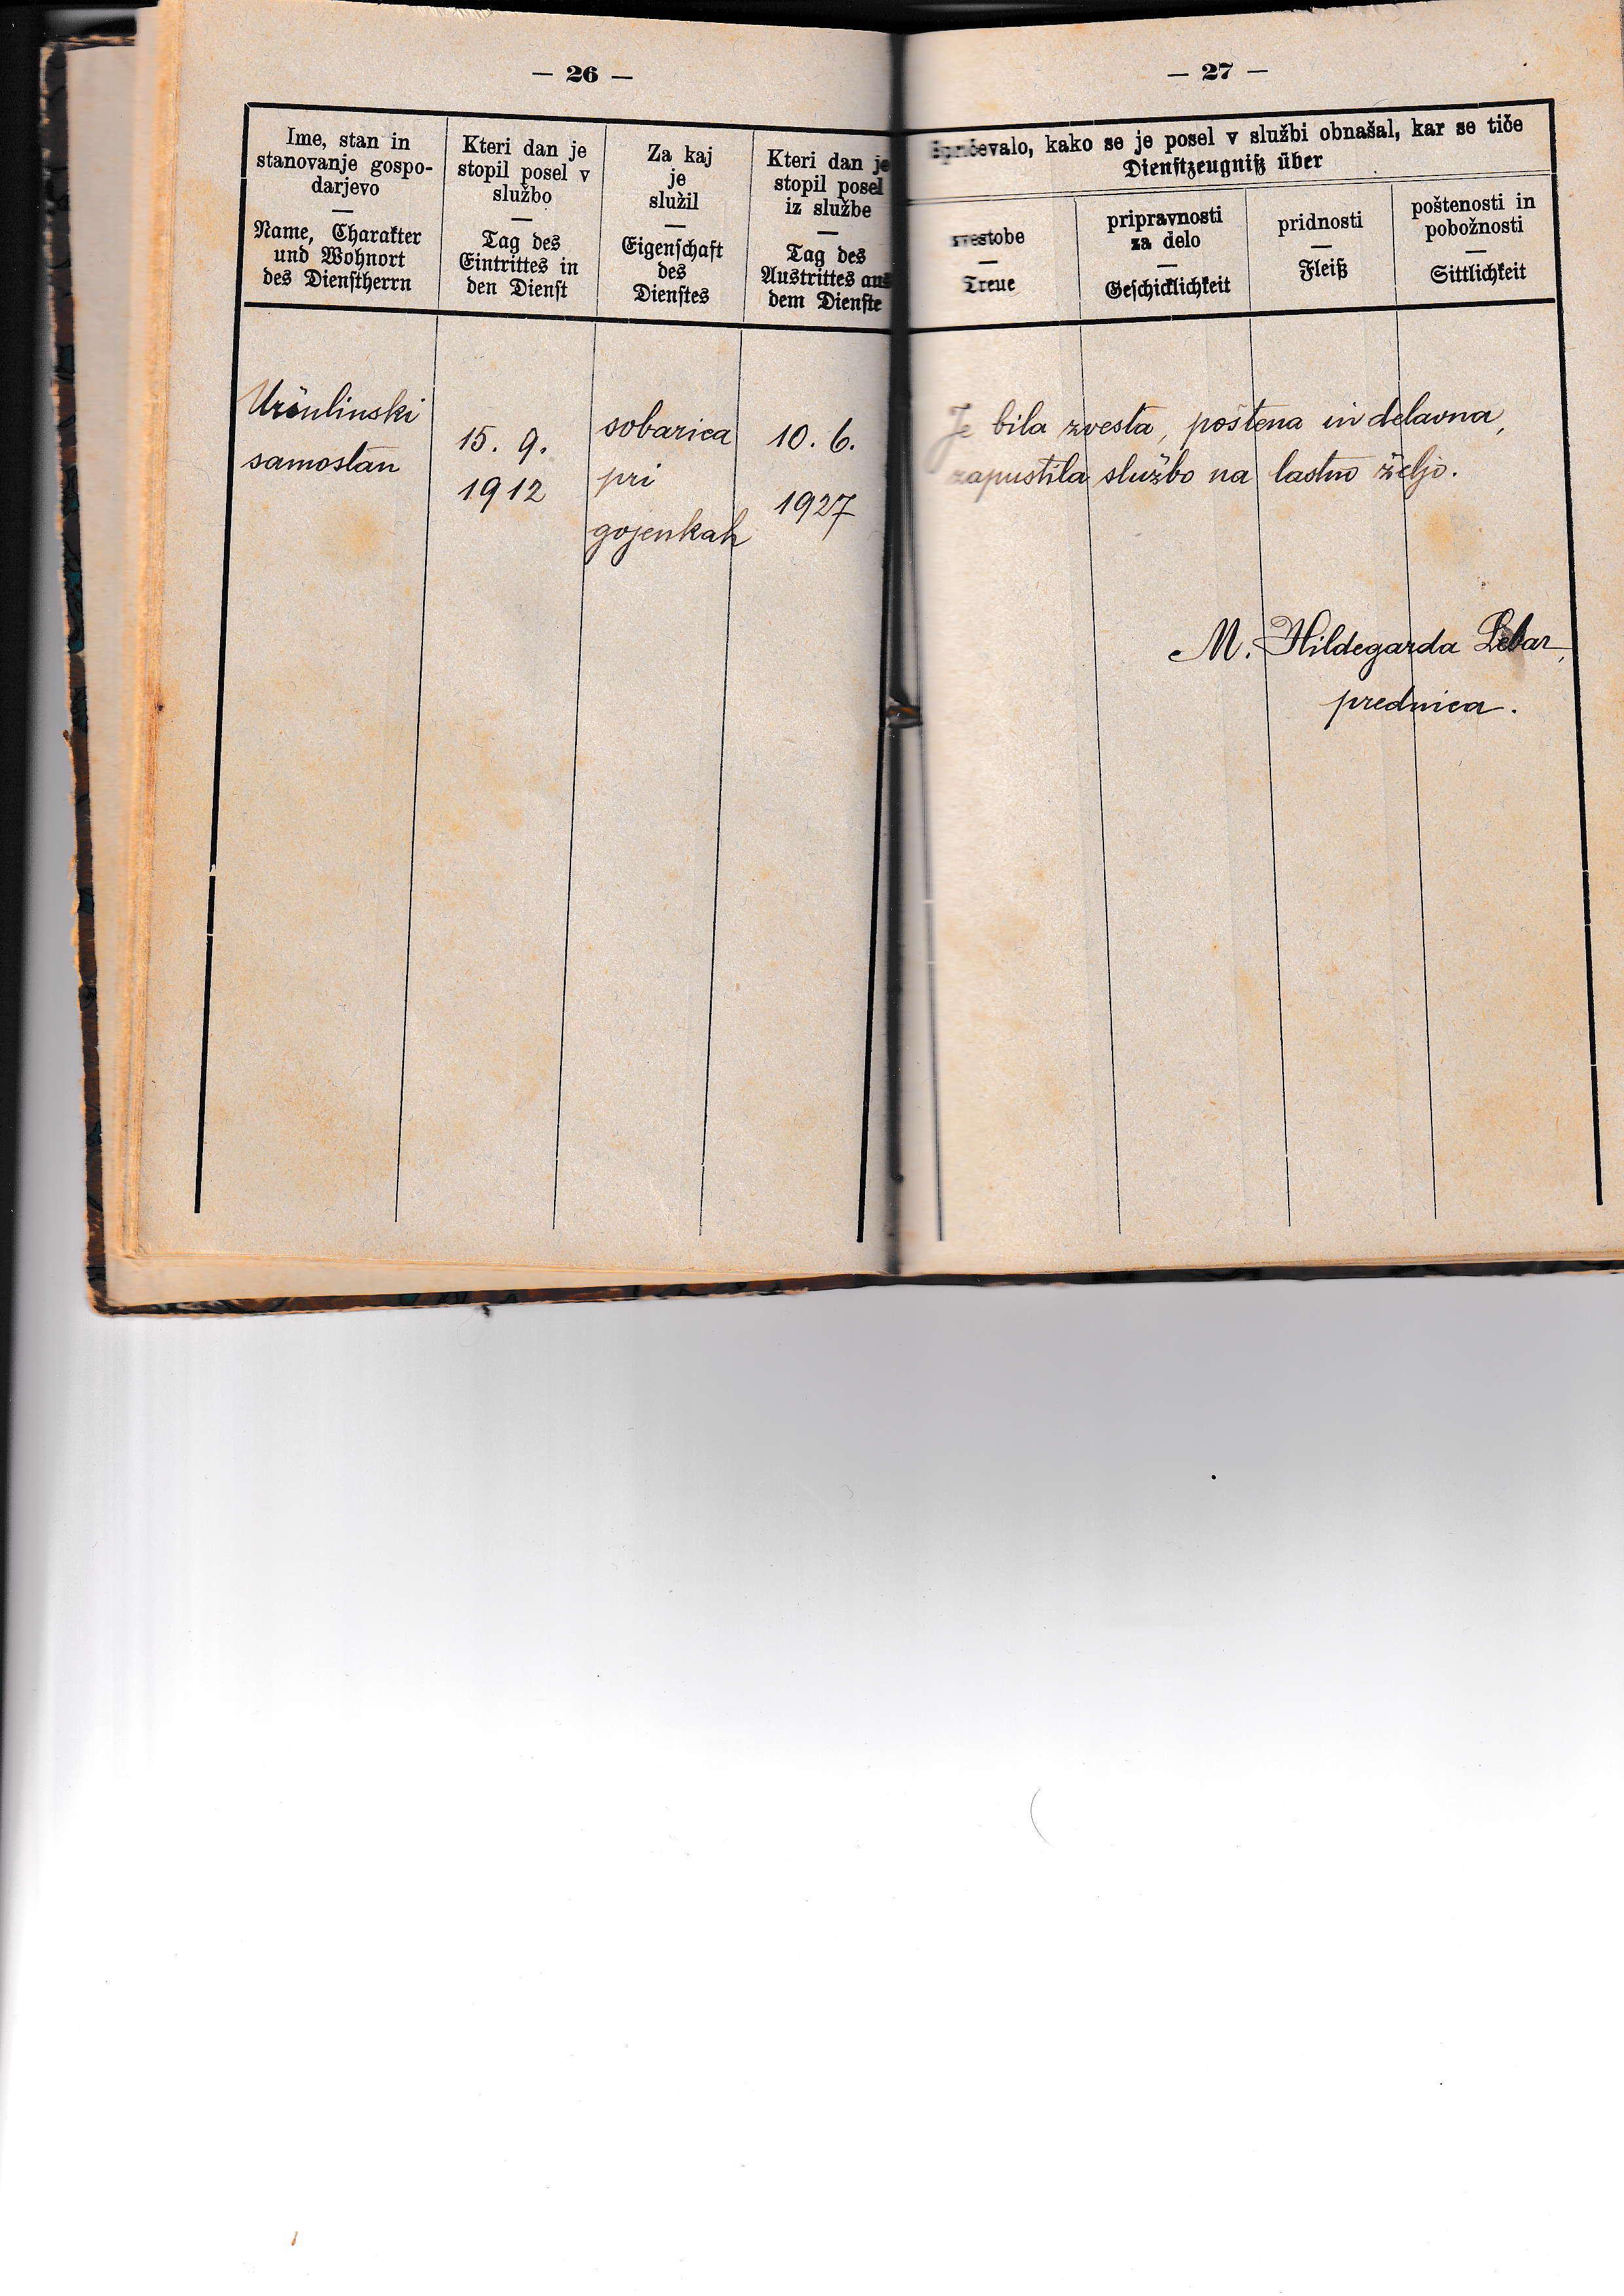 — 26 —
Ime, stan in
stanovanje gospo-
darjevo
—
Name, Charakter
und Wohnort
des Dienstherrn
Kteri dan je
stopil posel v
službo
—
Tag des
Eintrittes in
den Dienst
Za kaj
je
služil
—
Eigenschaft
des
Dienstes
Kteri dan je
stopil posel
iz službe
—
Tag des
Austrittes aus
dem Dienste
Uršulinski
samostan
15. 9.
1912
sobarica
pri
gojenkah
10. 6.
1927
— 27 —
Spričevalo, kako se je posel v službi obnašal, kar se tiče
Dienstzeugniß über
zvestobe
—
Treue
pripravnosti
za delo
—
Geschicklichkeit
pridnosti
—
Fleiß
poštenosti in
pobožnosti
—
Sittlichkeit
Je bila zvesta, poštena in delavna,
zapustila službo na lastno željo.
M. Hildegarda Lebar,
prednica.